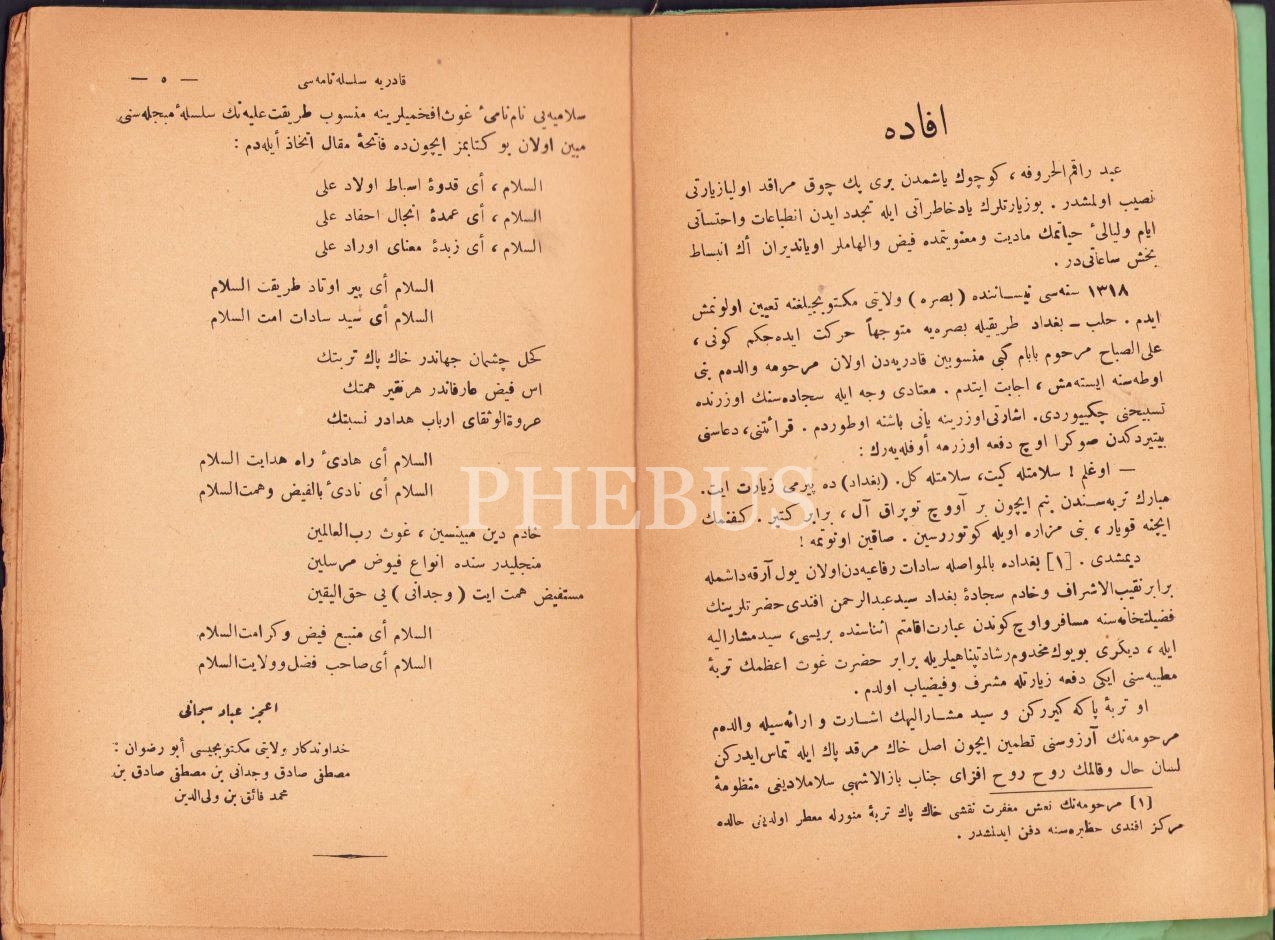 افاده
عبد راقم الحروفه ، كوچوك ياشمدن برى پك چوق مراقد اوليا زيارتى
نصيب اولمشدر . بوزيارتلرك يادخاطراتى ايله تجدد ايدن انطباعات واحتساتى
ايام وليالئ حياتمك ماديت ومعنويتمده فيض والهاملر اوياندیران اك انبساط
بخش ساعاتى در .
١٣١٨ سنه سى نيساننده ( بصره ) ولايتى مكتوبجيلغنه تعيين اولونمش
ايدم . حلب ـ بغداد طريقيله بصره يه متوجهاً حركت ايده جكم كونى ،
على الصباح مرحوم بابام كبى منسوبين قادريه دن اولان مرحومه والده م بنى
اوطه سنه ايسته مش ، اجابت ايتدم . معتادى وجه ايله سجاده سنك اوزرنده
تسبيحنى چكييوردى. اشارتى اوزرينه يانى باشنه اوطوردم . قرائتنى، دعاسنى
بيتيردكدن صوكرا اوچ دفعه اوزرمه أوفله يه رك :
— اوغلم ! سلامتله كيت، سلامتله كل. (بغداد) ده پيرمى زيارت ايت.
مبارك تربه سندن بنم ايچون بر آووچ توپراق آل ، برابر كتير . كفنمك
ايچنه قويار ، بنى مزاره اويله كوتوررسين . صاقين اونوتمه !
ديمشدى . [١] بغداده بالمواصله سادات رفاعيه دن اولان يول آرقه داشمله
برابر نقيب الاشراف وخادم سجادهٔ بغداد سيد عبدالرحمن افندى حضرتلرينك
فضيلتخانه سنه مسافر واوچ كوندن عبارت اقامتم اثناسنده بريسى، سيد مشاراليه
ايله ، ديكرى بويوك مخدوم رشادتپناهيلريله برابر حضرت غوث اعظمك تربهٔ
مطيبه سنى ايكى دفعه زيارتله مشرف وفيضياب اولدم .
او تربهٔ پاكه كيرركن و سيد مشاراليهك اشارت و ارائه سيله والده م
مرحومه نك آرزوسنى تطمين ايچون اصل خاك مرقد پاك ايله تماس ايدركن
لسان حال وقالمك روح روح افزاى جناب باز الاشهبى سلاملاديغى منظومهٔ
[١] مرحومه نك نعش مغفرت نقشى خاك پاك تربهٔ منورله معطر اولديغى حالده
مركز افندى حظيره سنه دفن ايدلمشدر .
قادريه سلسله نامه سى — ٥ —
سلاميه يى نام نامئ غوث افخميلرينه منسوب طريقت عليه نك سلسلهٔ مبجله سنى
مبين اولان بو كتابمز ايچون ده فاتحهٔ مقال اتخاذ أيله دم :
السلام ، أى قدوهٔ اسباط اولاد على
السلام ، أى عمدهٔ انجال احفاد على
السلام ، أى زبدهٔ معناى اوراد على
السلام أى پير اوتاد طريقت السلام
السلام أى سيد سادات امت السلام
كحل چشمان جهاندر خاك پاك تربتك
اس فيض عارفاندر هر نقير همتك
عروة الوثقاى ارباب هدادر نسبتك
السلام أى هادئ راه هدايت السلام
السلام أى نادئ بالفيض وهمت السلام
خادم دين مبينسين ، غوث رب العالمين
منجليدر سنده انواع فيوض مرسلين
مستفيض همت ايت ( وجدانى ) يى حق اليقين
السلام أى منبع فيض وكرامت السلام
السلام أى صاحب فضل وولايت السلام
اعجز عباد سبحانى
خداوندكار ولايتى مكتوبجيسى أبو رضوان :
مصطفى صادق وجدانى بن مصطفى صادق بن
محمد فائق بن ولى الدين
PHEBUS